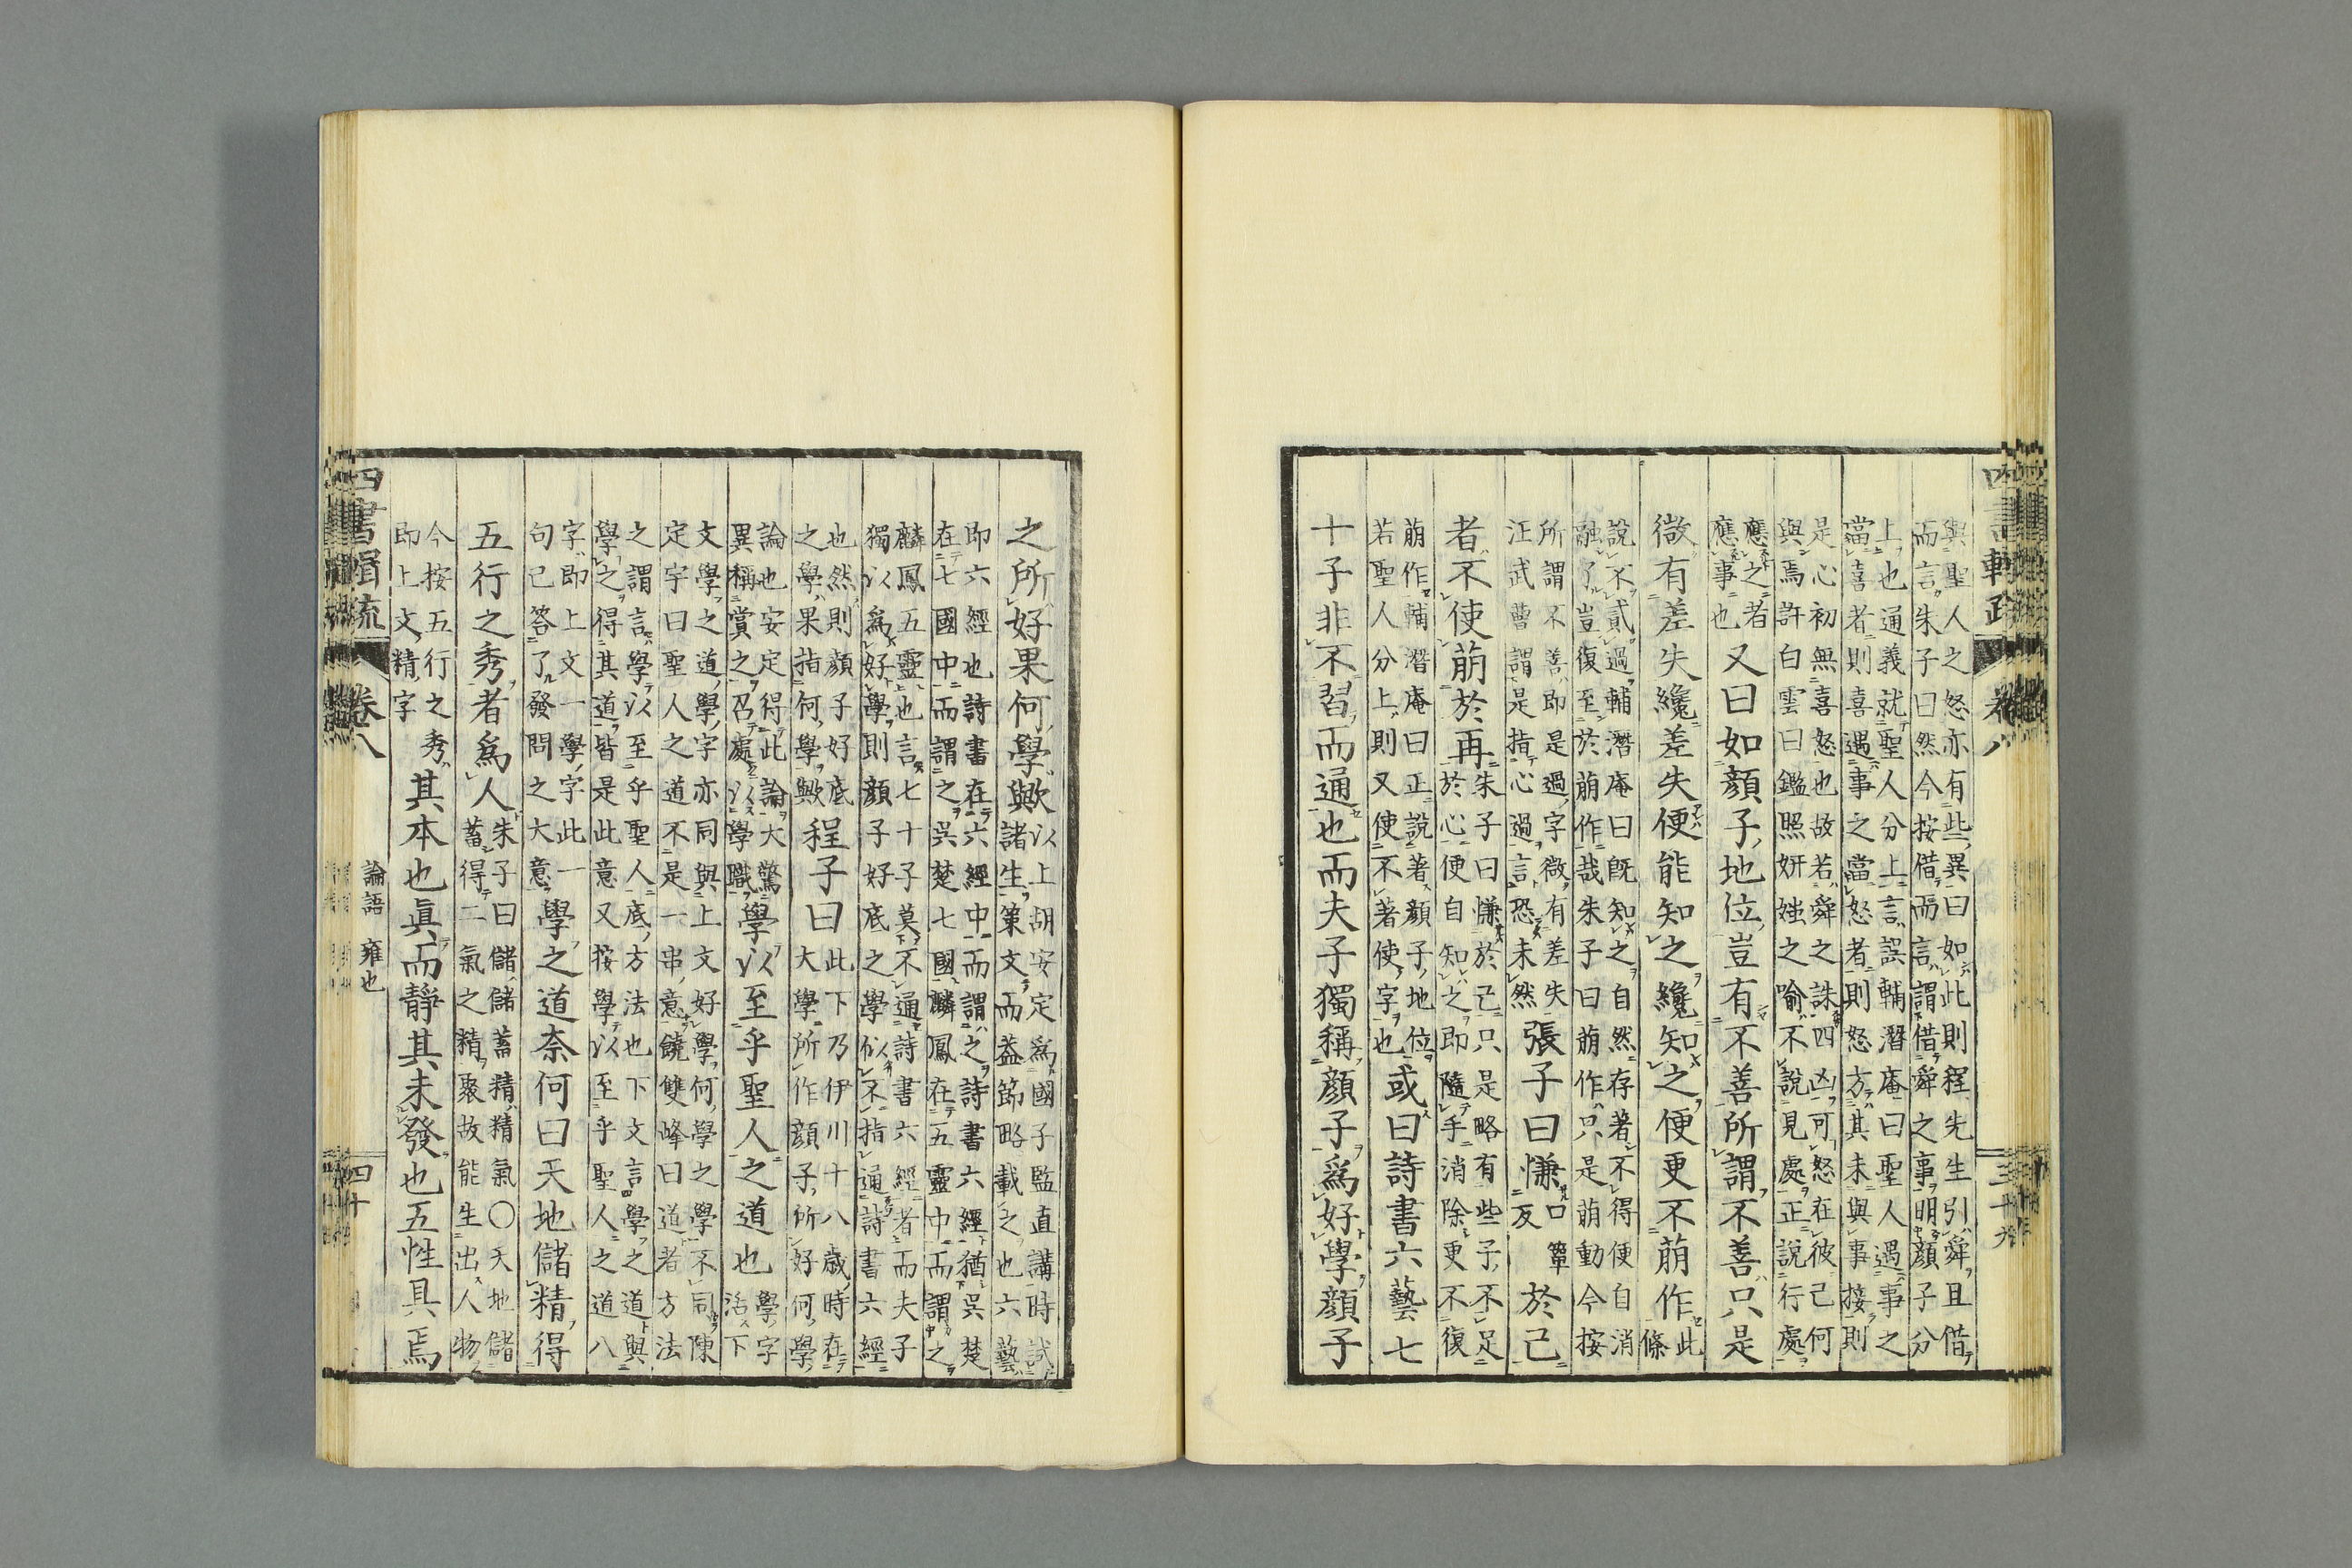 與聖人之怒亦有些異曰如此則程先生引舜且借
而言朱子曰然今按借而言謂借舜之事明顔子分
上也通義就聖人分上言誤輔潛庵曰聖人遇事之
當喜者則喜遇事之當怒者則怒方其未與事接則
是心初無喜怒也故若舜之誅四凶可怒在彼己何
與焉許白雲曰鑑照妍媸之喻不說見處正說行處
應之者
應事也
又曰如顔子地位豈有不善所謂不善只是
微有差失纔差失便能知之纔知之便更不萠作
此
條
說不貳過輔潛庵曰旣知之自然存著不得便自消
融了豈復至於萠作哉朱子曰萠作只是萠動今按
所謂不善即是過字微有差失
汪武曹謂是指心過言恐未然
張子曰慊
口
簟
反
於己
者不使萠於再
朱子曰慊於己只是略有些子不足
於心便自知之即隨手消除更不復
萠作輔潛庵曰正說著顔子地位
若聖人分上則又使不著使字也
或曰詩書六藝七
十子非不習而通也而夫子獨稱顔子爲好學顔子
之所好果何學歟
以上胡安定爲國子監直講時試
諸生策文而益節略載之也六藝
即六經也詩書在六經中而謂之詩書六經猶吳楚
在七國中而謂之吳楚七國麟鳳在五靈中而謂之
麟鳳五靈也言七十子莫不通詩書六經者而夫子
獨以爲好學則顔子好底之學似不指通詩書六經
也然則顔子好底
之學果指何學歟
程子曰
此下乃伊川十八歳時在
大學所作顔子所好何學
論也安定得此論大驚
異稱賞之召處以學職
學以至乎聖人之道也
學字
活下
文學之道學字亦同與上文好學何學之學不同陳
定宇曰聖人之道不是一串意饒雙峰曰道者方法
之謂言學以至乎聖人底方法也下文言學之道與
學之得其道皆是此意又按學以至乎聖人之道八
字即上文一學字此一
句已答了發問之大意
學之道奈何曰天地儲精得
五行之秀者爲人
朱子曰儲儲蓄精精氣〇天地儲
蓄得二氣之精聚故能生出人物
今按五行之秀
即上文精字
其本也眞而靜其未發也五性具焉
四書輯疏
卷八
論語
雍也
四十